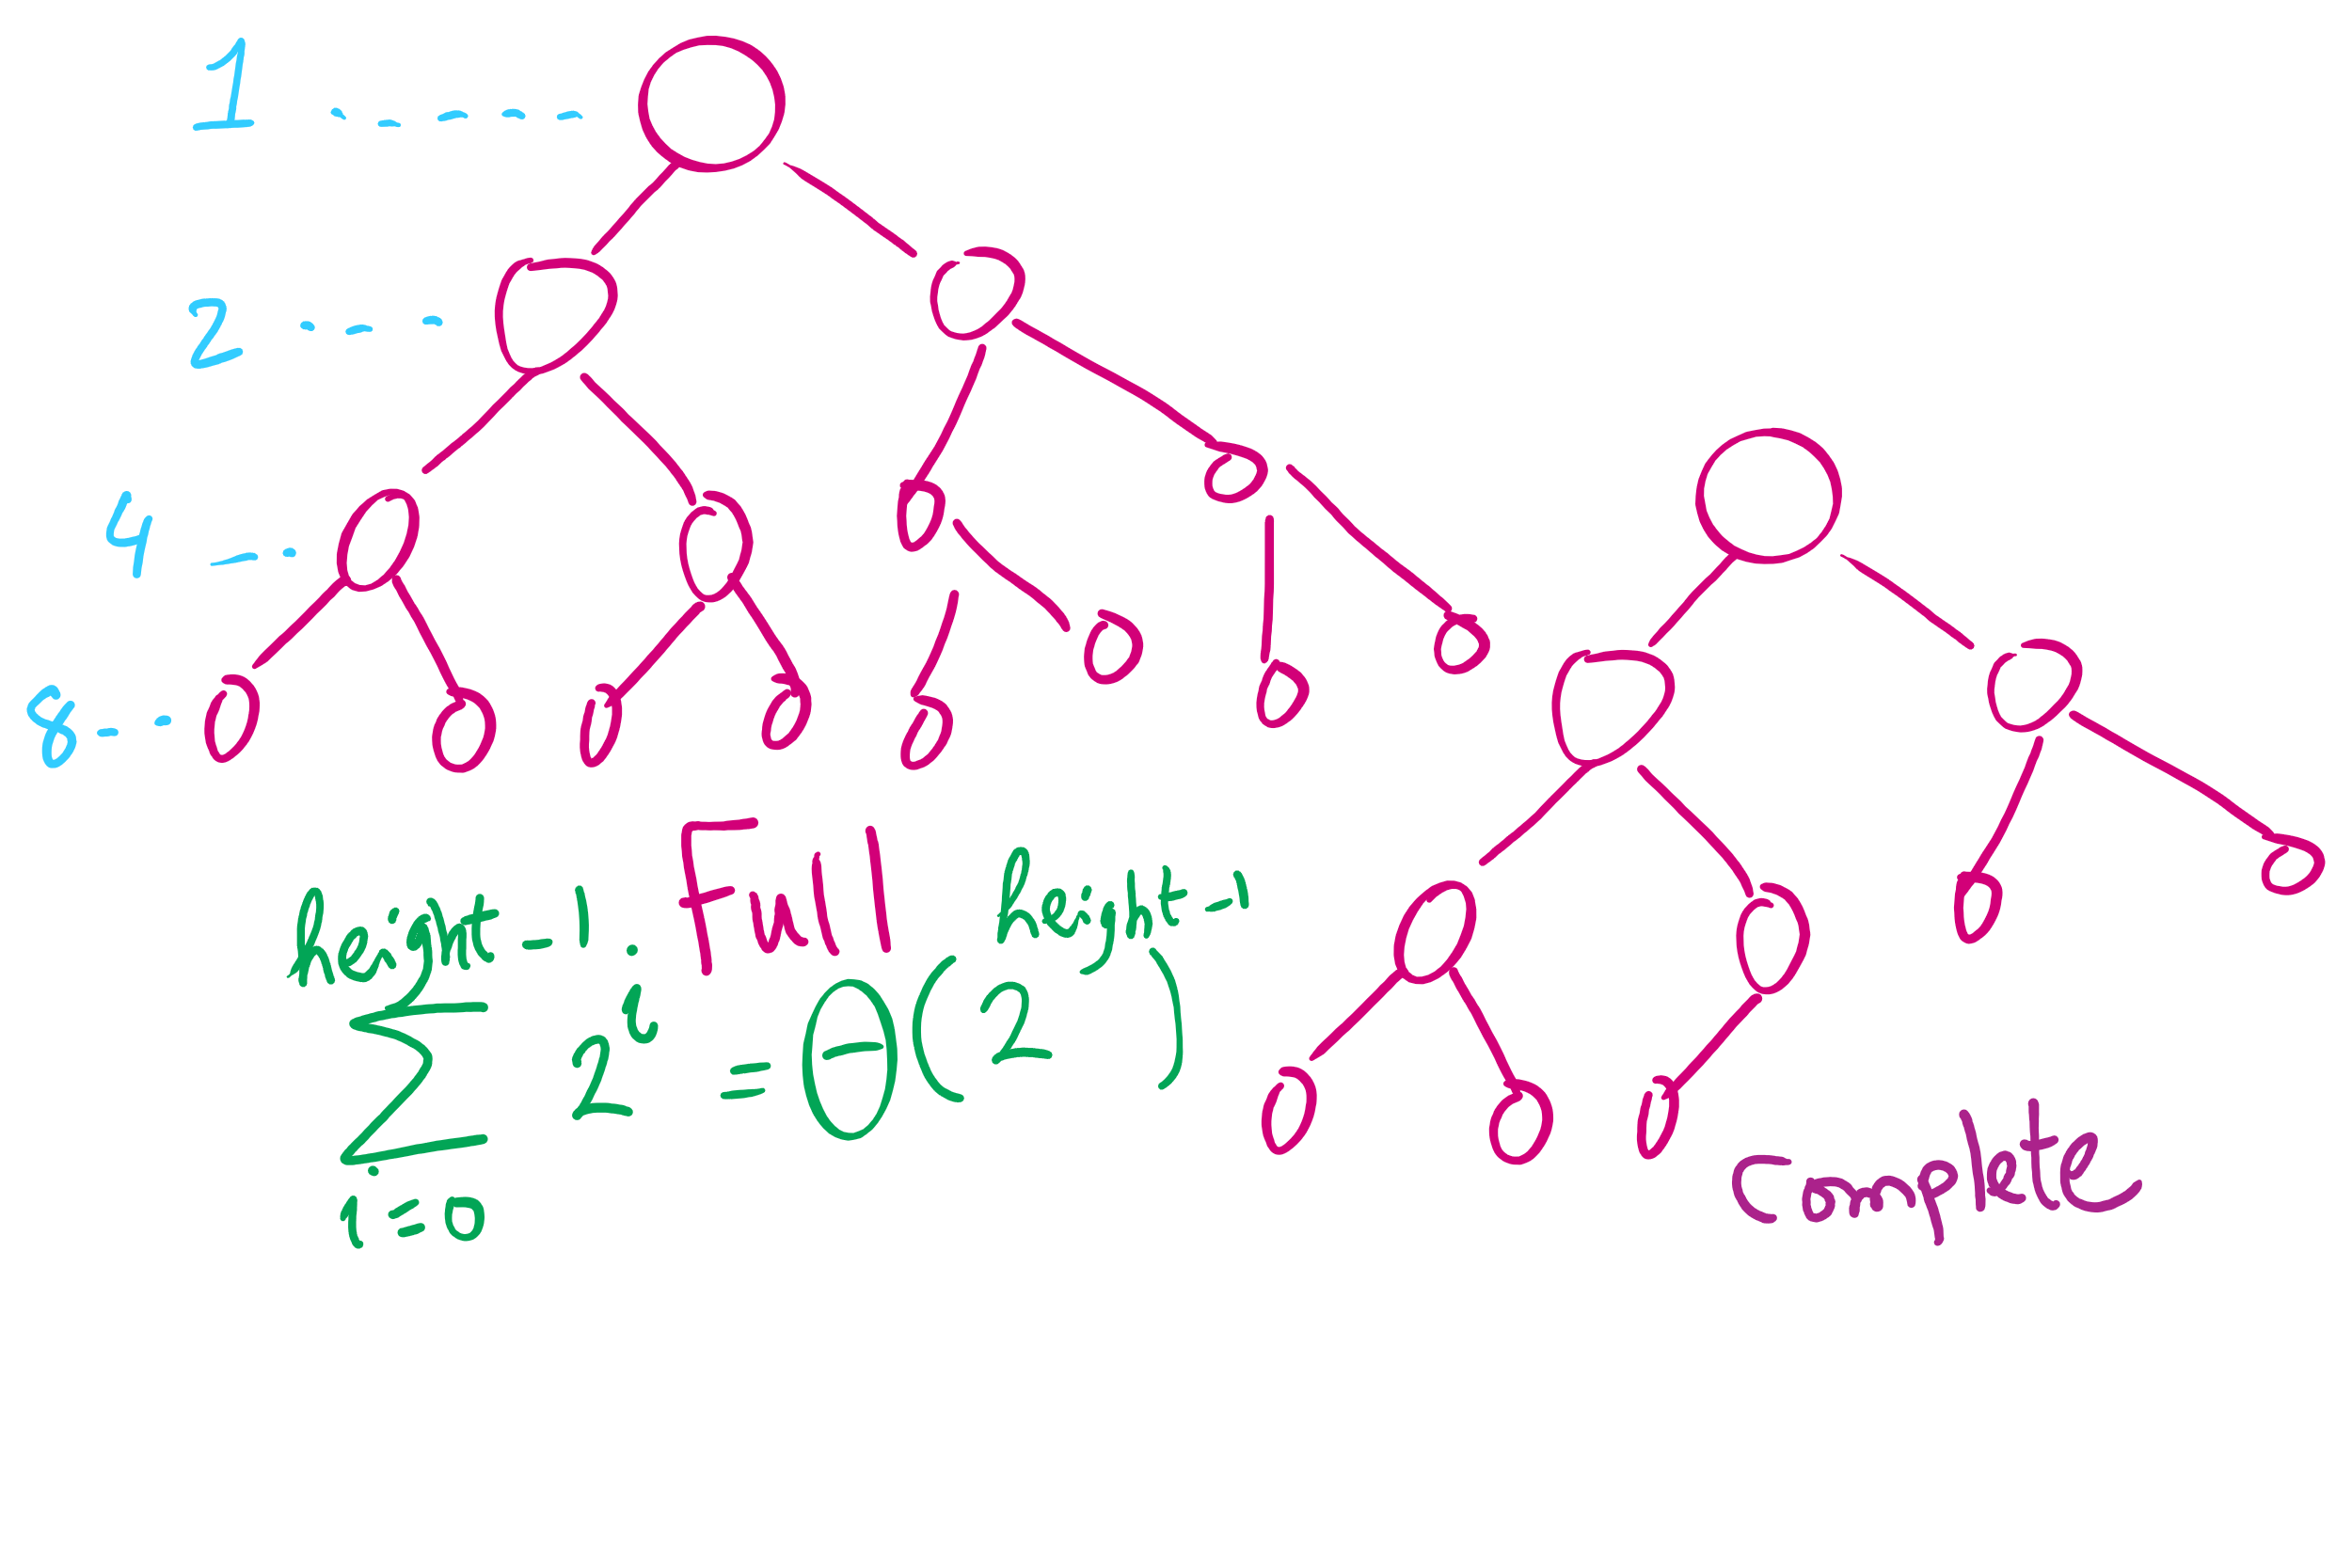 1
2
4
8
Full
height-1
∑ 2^i = Θ(2^height-1)
i=0
Complete